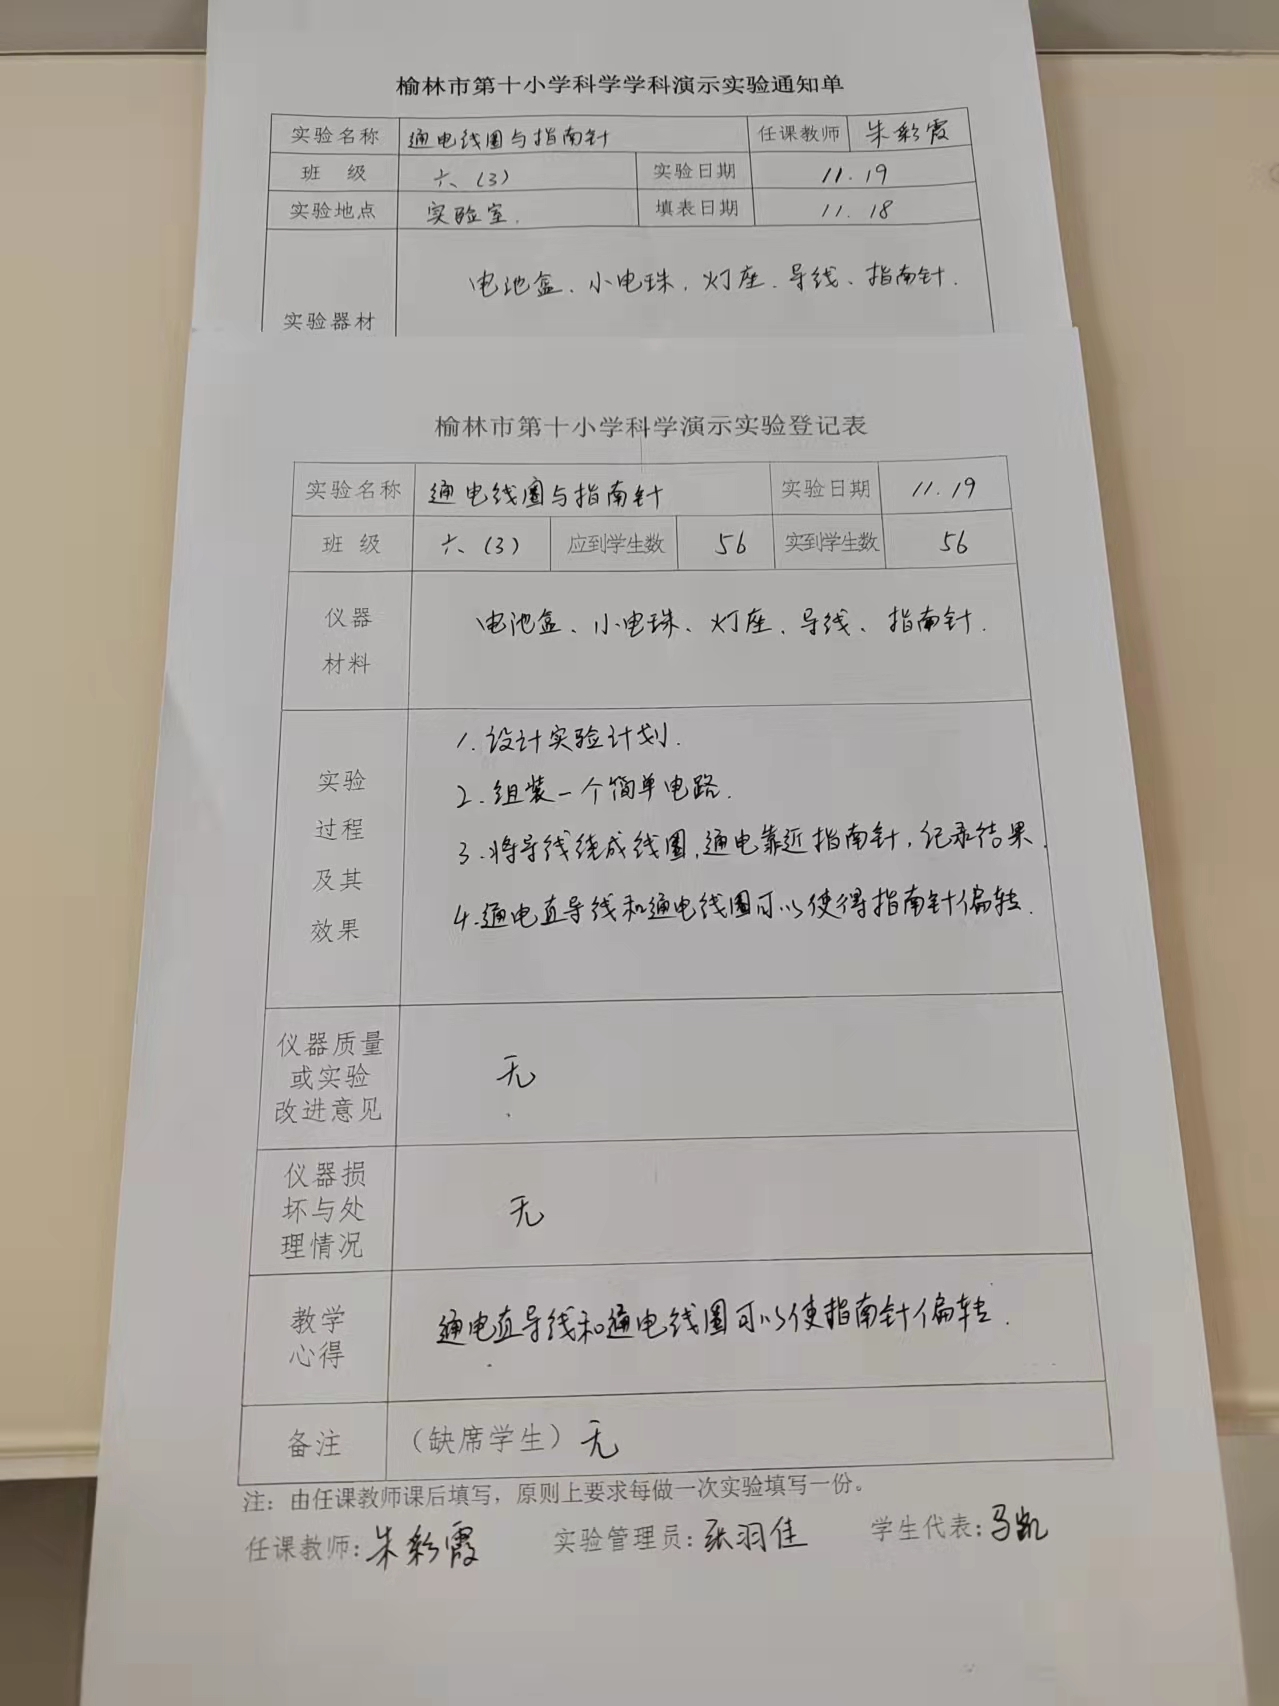 榆林市第十小学科学学科演示实验通知单
实验名称 通电线圈与指南针 任课教师 朱彩霞
班 级 六、(3) 实验日期 11.19
实验地点 实验室. 填表日期 11.18
实验器材 电池盒、小电珠、灯座、导线、指南针.
榆林市第十小学科学演示实验登记表
实验名称 通电线圈与指南针 实验日期 11.19
班 级 六、(3) 应到学生数 56 实到学生数 56
仪器
材料
电池盒、小电珠、灯座、导线、指南针.
实验
过程
及其
效果
1.设计实验计划.
2.组装一个简单电路.
3.将导线绕成线圈,通电靠近指南针,纪录结果.
4.通电直导线和通电线圈可以使得指南针偏转.
仪器质量
或实验
改进意见
无
仪器损
坏与处
理情况
无
教学
心得
通电直导线和通电线圈可以使指南针偏转.
备注 (缺席学生) 无
注：由任课教师课后填写，原则上要求每做一次实验填写一份。
任课教师: 朱彩霞 实验管理员: 张羽佳 学生代表: 马凯